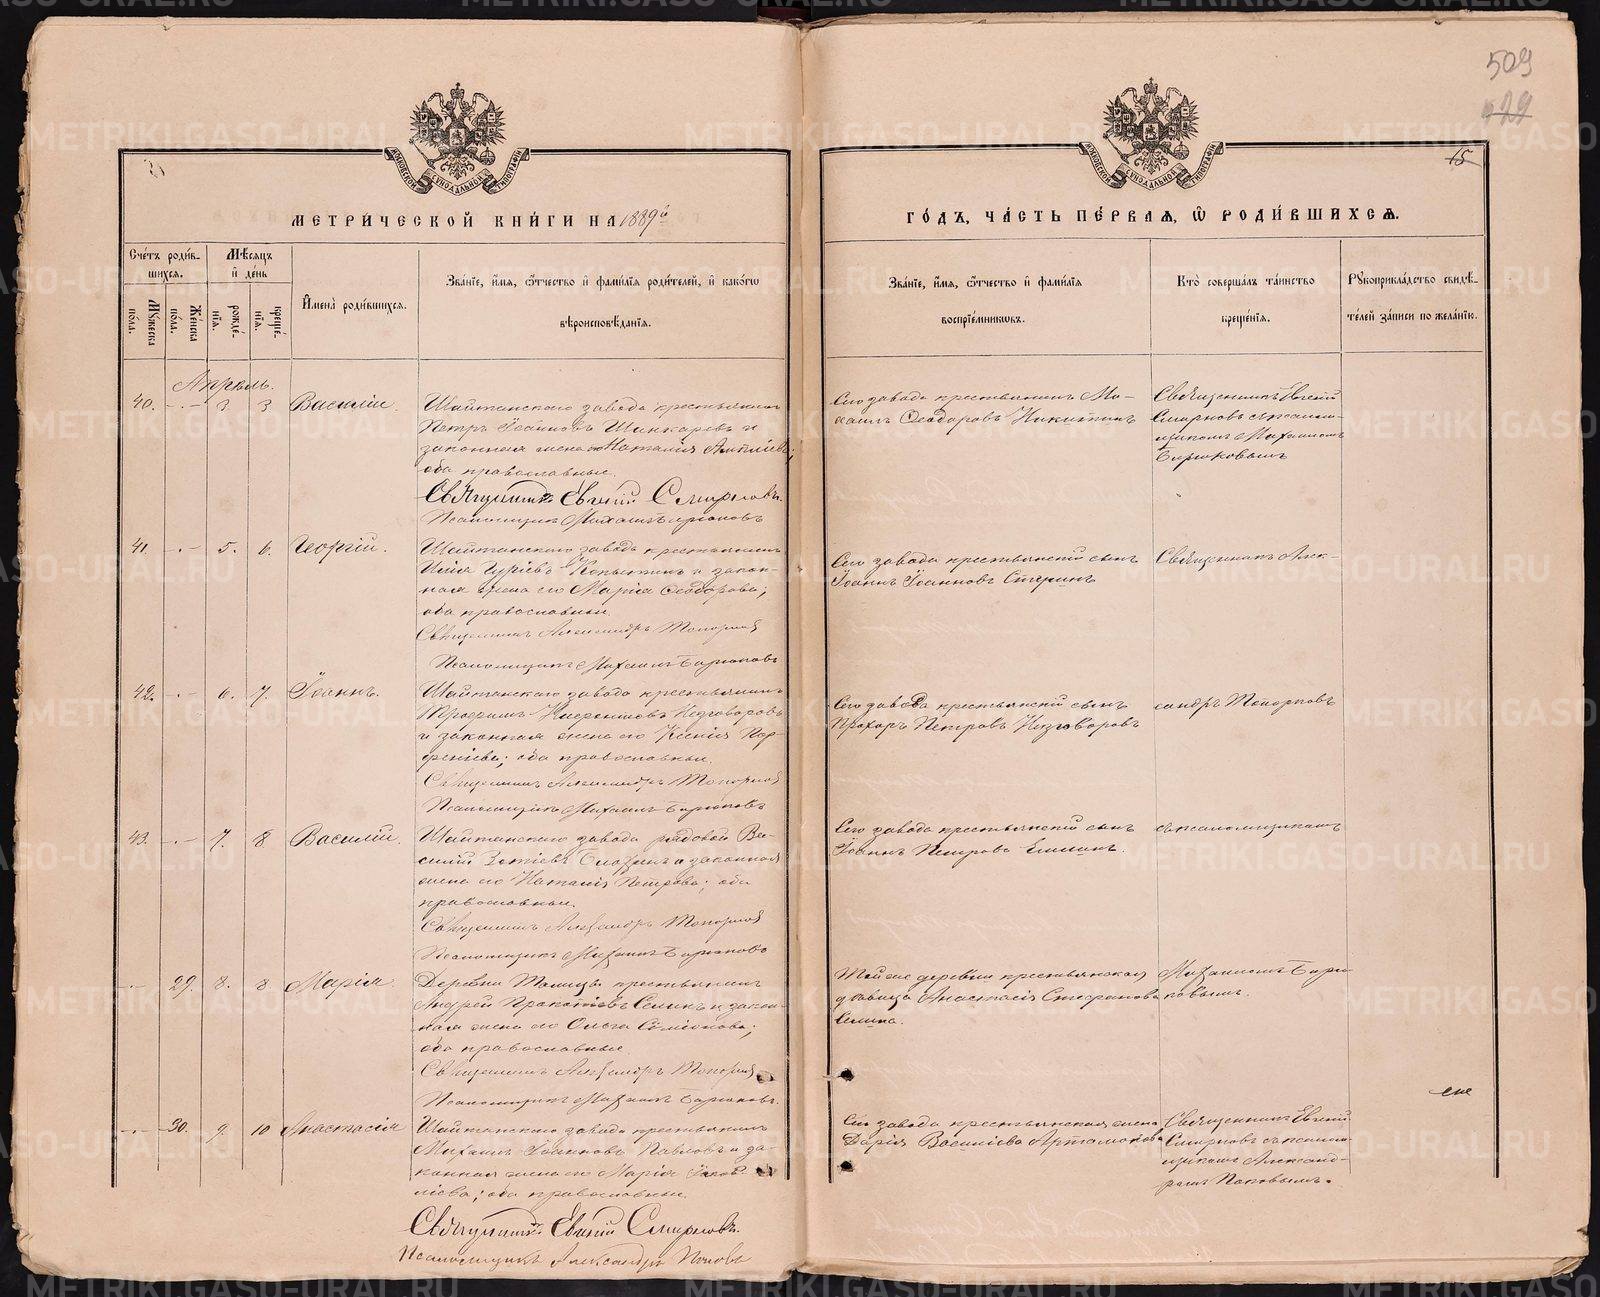 509
29
15
МОСКОВСКОЙ СѴНОДАЛЬНОЙ ТИПОГРАФІИ
МОСКОВСКОЙ СѴНОДАЛЬНОЙ ТИПОГРАФІИ
МЕТРИ́ЧЕСКОЙ КНИ́ГИ НА 1889й
ГО́ДЪ, ЧА́СТЬ ПЕ́РВАѦ, Ѡ РОДИ́ВШИХСѦ.
Сче́тъ роди́в-
шихсѧ.
Мѣ́сѧцъ
и҆ де́нь
Мꙋ́жеска по́ла.
Же́нска по́ла.
рожде́-
нїѧ.
креще́-
нїѧ.
И҆мена̀ роди́вшихсѧ.
Зва́нїе, и҆́мѧ, ѻ҆́тчество и҆ фами́лїѧ роди́телей, и҆ како́гѡ
вѣроисповѣ́данїѧ.
Зва́нїе, и҆́мѧ, ѻ҆́тчество и҆ фами́лїѧ
воспрїе́мникѡвъ.
Кто̀ соверша́лъ та́инство
креще́нїѧ.
Рꙋкоприкла́дство свидѣ́-
телей за́писи по жела́нїю.
Апрѣль.
40. 3 3 Василій.
Шайтанскаго завода крестьянинъ
Петръ Іоанновъ Шинкаревъ и
законная жена его Наталія
оба православные.
Священникъ Евгеній Смирновъ.
Псаломщикъ Михаилъ Бирюковъ
Сего завода крестьянинъ Ми-
хаилъ Ѳеодоровъ Никитинъ
Священникъ Евгеній
Смирновъ съ псалом-
щикомъ Михаиломъ
Бирюковымъ
41. 5. 6. Георгій.
Шайтанскаго завода крестьянинъ
Илія Гуріевъ Копытинъ и закон-
ная жена его Марія Ѳеодорова;
оба православные.
Священникъ Александръ Топорковъ
Псаломщикъ Михаилъ Бирюковъ
Сего завода крестьянскій сынъ
Іоаннъ Іоанновъ Стеринъ
Священникъ Алек-
42. 6. 7. Іоаннъ.
Шайтанскаго завода крестьянинъ
Трофимъ Незговоровъ
и законная жена его Ксенія Пар-
феніева; оба православные.
Священникъ Александръ Топорковъ
Псаломщикъ Михаилъ Бирюковъ
Сего завода крестьянскій сынъ
Прохоръ Петровъ Незговоровъ
сандръ Топорковъ
43. 7. 8 Василій.
Шайтанскаго завода рядовой Ва-
силій и законная
жена его Наталія Петрова; оба
православные.
Священникъ Александръ Топорковъ
Псаломщикъ Михаилъ Бирюковъ
Сего завода крестьянскій сынъ
Іоаннъ Петровъ Емлинъ.
съ псаломщикомъ
29. 8. 8 Марія
Деревни Талицы крестьянинъ
Андрей Селинъ и закон-
ная жена его Ольга Симеонова;
оба православные
Священникъ Александръ Топорковъ
Псаломщикъ Михаилъ Бирюковъ.
Той же деревни крестьянская
дѣвица Анастасія Стефанова
Селина.
Михаиломъ Бирю-
ковымъ.
30. 9. 10 Анастасія
Шайтанскаго завода крестьянинъ
Михаилъ Іоанновъ Павловъ и за-
конная жена его Марія Іаков-
лева; оба православные.
Священникъ Евгеній Смирновъ.
Псаломщикъ Александръ Поповъ
Сего завода крестьянская жена
Дарія Василіева Артамонова
Священникъ Евгеній
Смирновъ съ псалом-
щикомъ Александ-
ромъ Поповымъ.
METRIKI.GASO-URAL.RU